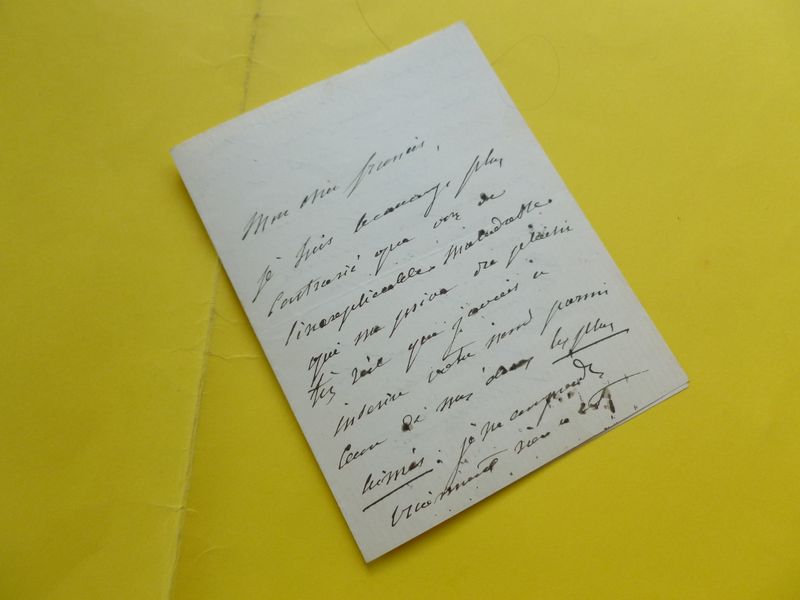 Mon cher Francis,
je suis beaucoup plus
contrarié que vous de
l'inexplicable maladresse
qui me prive du plaisir
très réel que j'avais à
inscrire votre nom parmi
ceux de les plus
aimés. je ne comprends
vraiment rien à cet